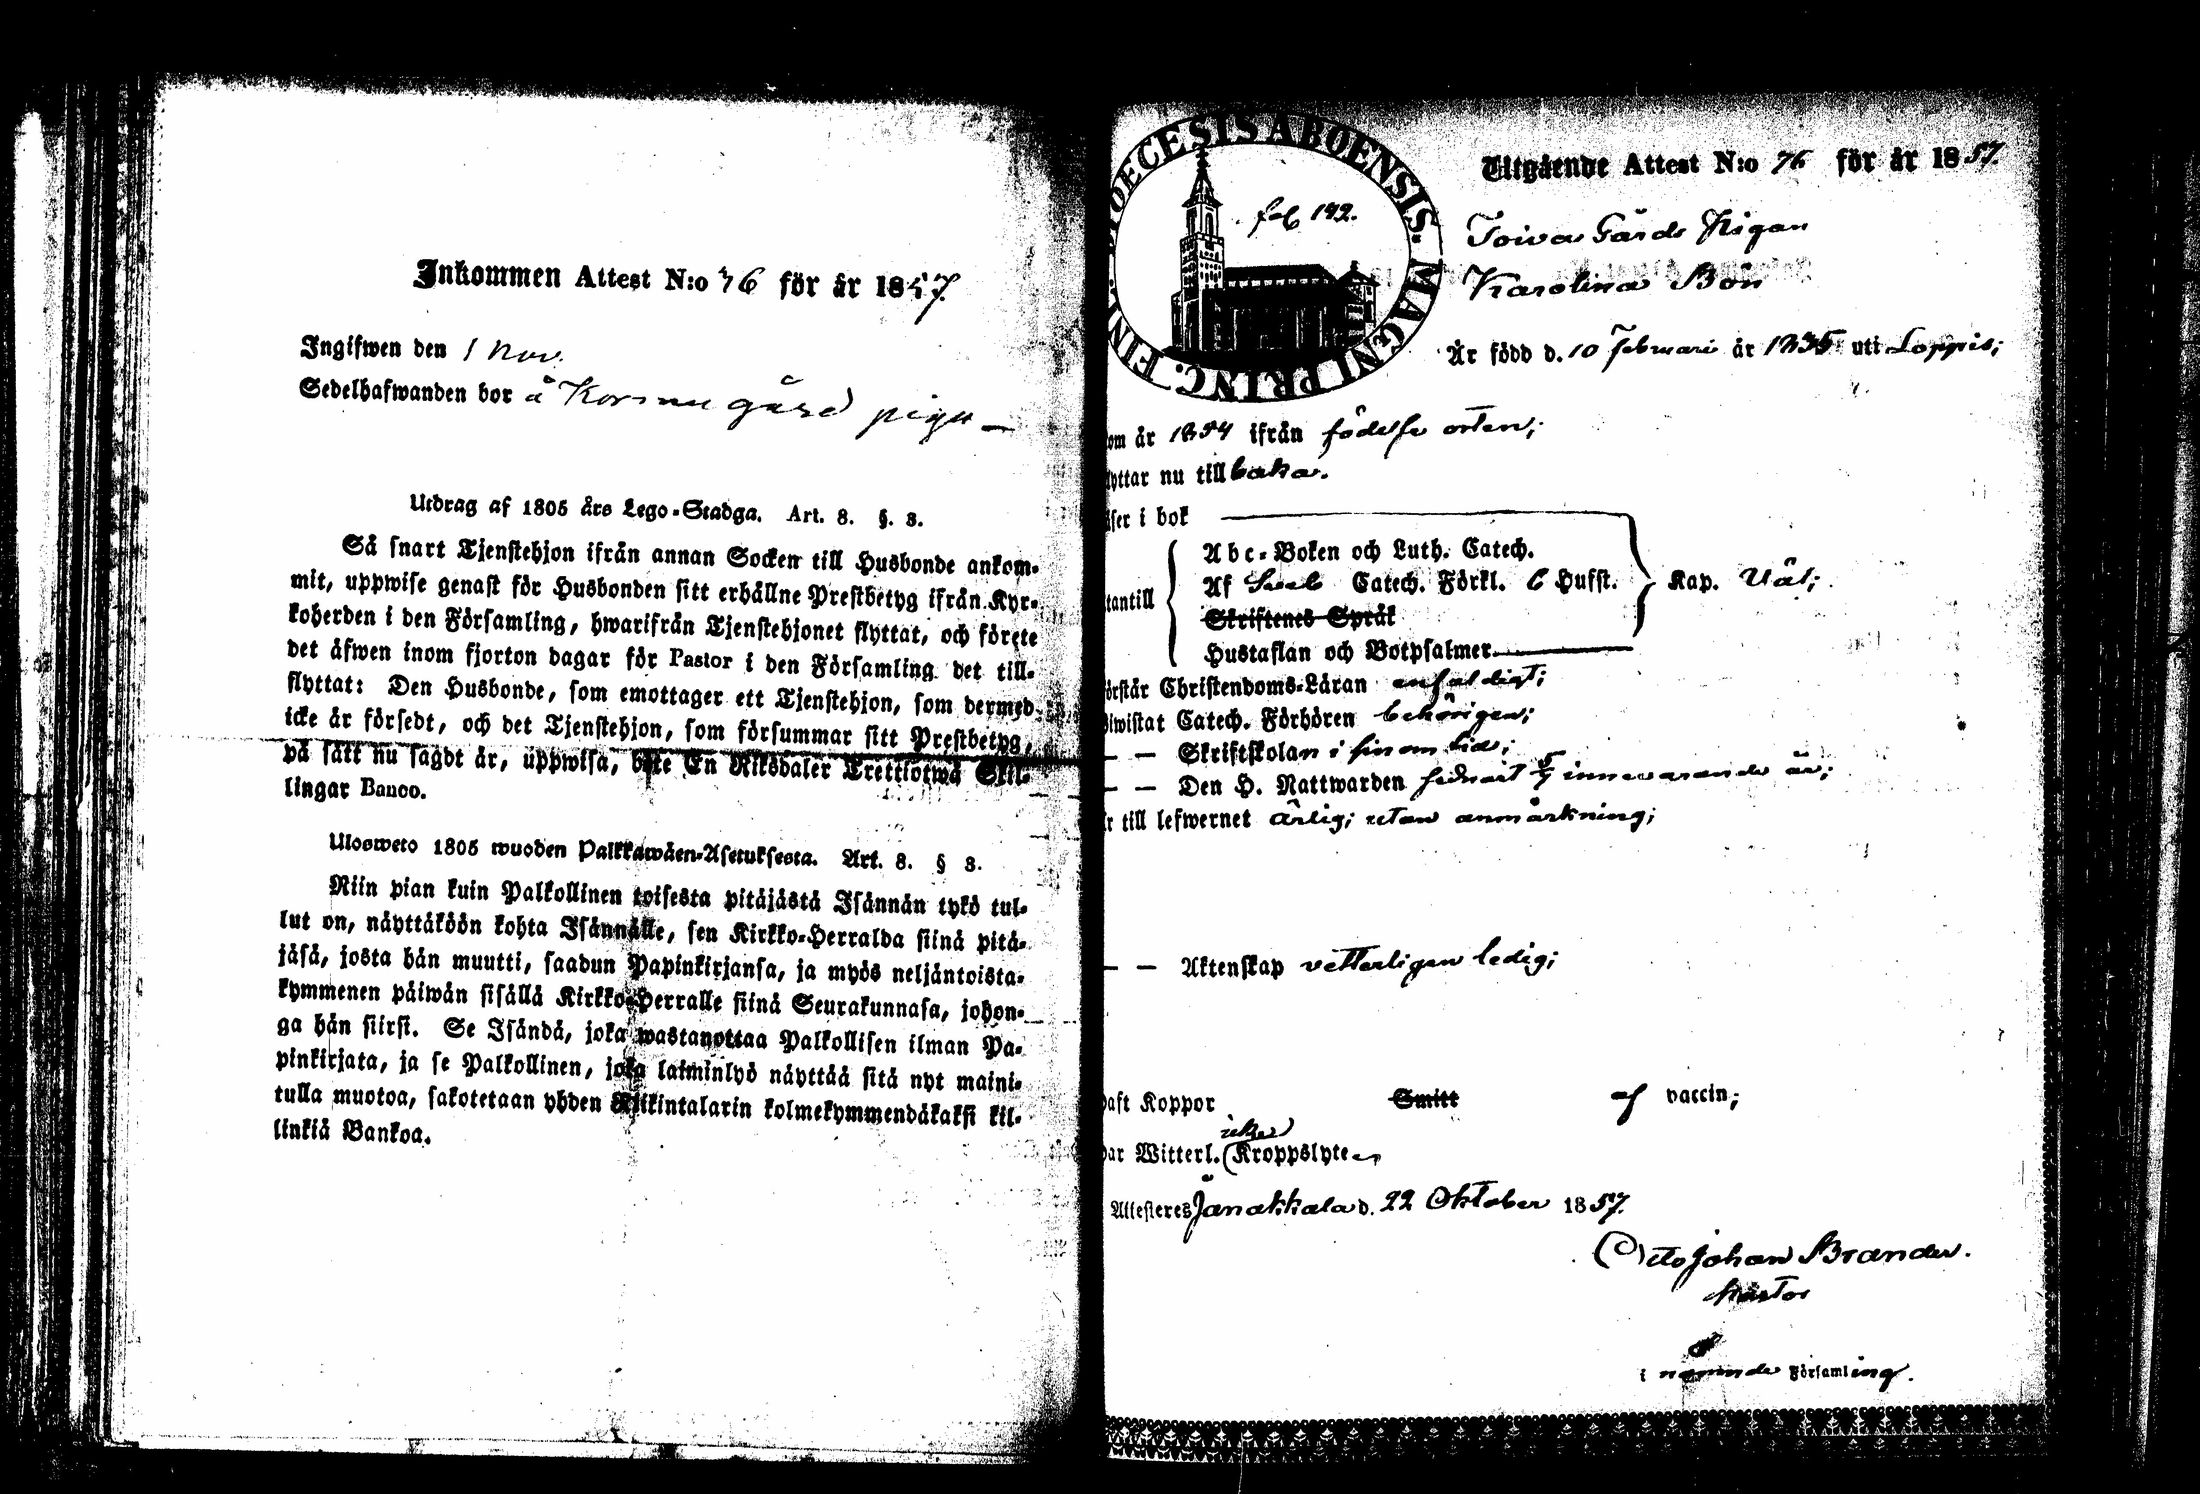 Inkommen Attest N:o 76 för år 1857
Ingifwen den 1 Nov.
Sedelhafwanden bor å gård piga
Utdrag af 1805 års Lego-Stadga. Art. 8. §. 3.
Så snart Tjenstehjon ifrån annan Socken till Husbonde ankom-
mit, uppwise genast för Husbonden sitt erhållne Prestbetyg ifrån Kyr-
koherden i den Församling, hwarifrån Tjenstehjonet flyttat, och förete
det äfwen inom fjorton dagar för Pastor i den Församling det till-
flyttat: Den Husbonde, som emottager ett Tjenstehjon, som dermed
icke är försedt, och det Tjenstehjon, som försummar sitt Prestbetyg,
på sätt nu sagdt är, uppwisa, böte En Riksdaler Trettiotwå Skil-
lingar Banco.
Ulosweto 1805 wuoden Palkkawäen-Asetuksesta. Art. 8. § 3.
Niin pian kuin Palkollinen toisesta pitäjästä Isännän tykö tul-
lut on, näyttäköön kohta Isännälle, sen Kirkko-Herralda siinä pitä-
jäsä, josta hän muutti, saadun Papinkirjansa, ja myös neljäntoista-
kymmenen päiwän sisällä Kirkko-Herralle siinä Seurakunnasa, johon-
ga hän siirsi. Se Isändä, joka wastanottaa Palkollisen ilman Pa-
pinkirjata, ja se Palkollinen, joka laiminlyö näyttää sitä nyt maini-
tulla muotoa, sakotetaan yhden Riikintalarin kolmekymmendäkaksi kil-
linkiä Bankoa.
DIOECESIS ABOENSIS. MAGNI PRINC. FINL.
fol 142.
Utgående Attest N:o 76 för år 1857.
Toiva Gårds Pigan
Karolina Bön
År född d. 10 Februari år 1835 uti Loppis;
om år 1854 ifrån födelse orten;
lyttar nu tillbaka.
äser i bok
tantill
Abc-Boken och Luth. Catech.
Af Sveb Catech. Förkl. 6 Hufst. Kap. Väl;
Skriftenes Språk
Hustaflan och Botpsalmer
örstår Christendoms-Läran enfaldigt;
iwistat Catech. Förhören behörigen;
— — Skriftskolan i sinom tid;
— — Den H. Nattwarden sednast 5/7 innevarande år;
r till lefwernet ärlig; utan anmärkning;
— — Äktenskap vetterligen ledig;
haft Koppor Smitt af vaccin;
icke
har Witterl. Kroppslyte
Attesteres Janakkala d. 22 Oktober 1857.
Otto Johan Brander.
Pastor
i nämnde Församling.